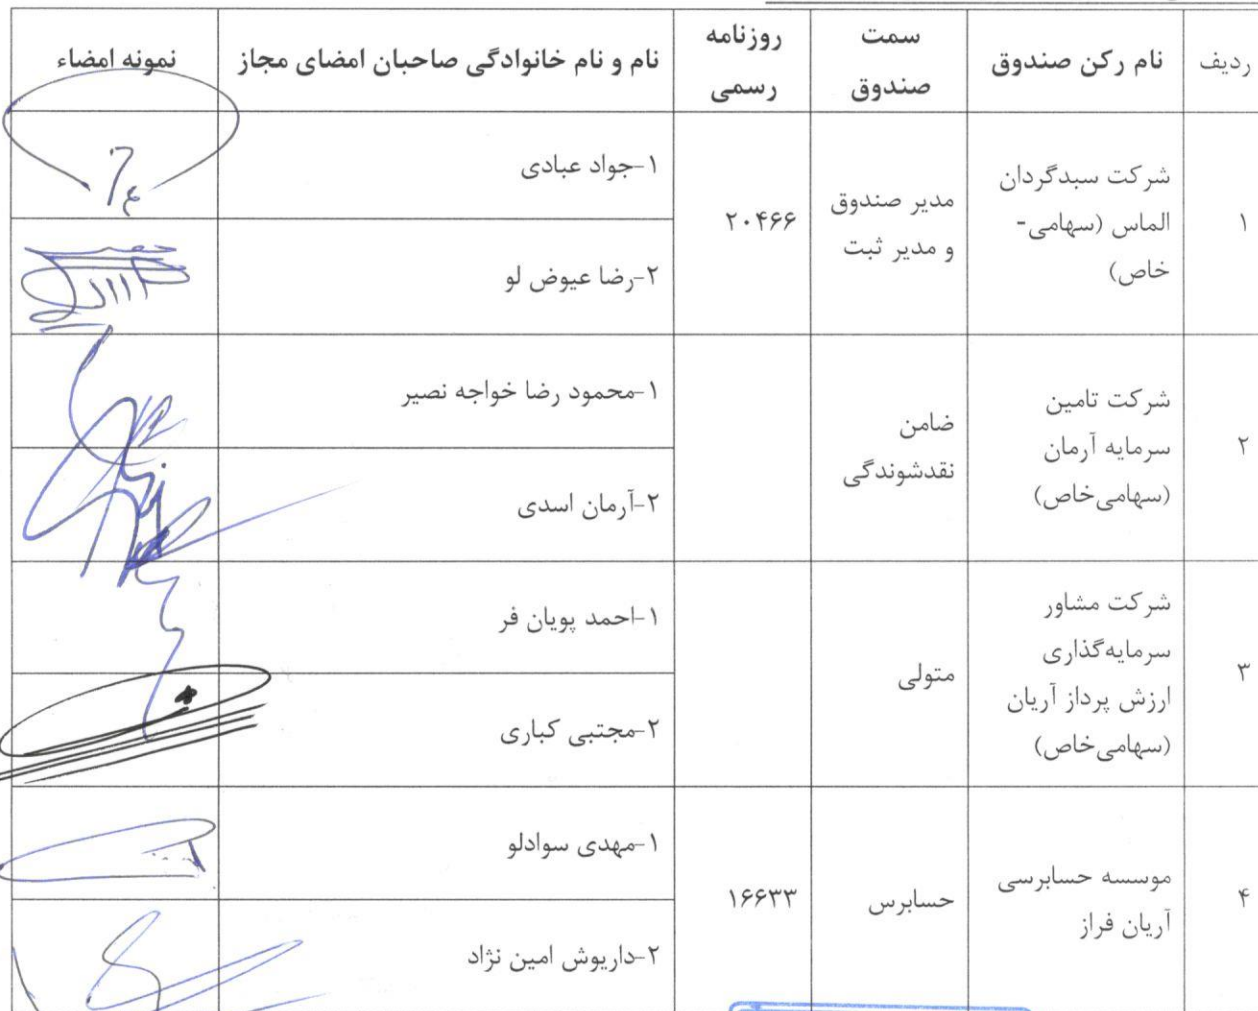 ردیف
نام رکن صندوق
سمت
صندوق
روزنامه
رسمی
نام و نام خانوادگی صاحبان امضای مجاز
نمونه امضاء
۱
شرکت سبدگردان
الماس (سهامی-
خاص)
مدیر صندوق
و مدیر ثبت
۲۰۴۶۶
۱-جواد عبادی
۲-رضا عیوض لو
۲
شرکت تامین
سرمایه آرمان
(سهامی‌خاص)
ضامن
نقدشوندگی
۱-محمود رضا خواجه نصیر
۲-آرمان اسدی
۳
شرکت مشاور
سرمایه‌گذاری
ارزش پرداز آریان
(سهامی‌خاص)
متولی
۱-احمد پویان فر
۲-مجتبی کباری
۴
موسسه حسابرسی
آریان فراز
حسابرس
۱۶۶۳۳
۱-مهدی سوادلو
۲-داریوش امین نژاد